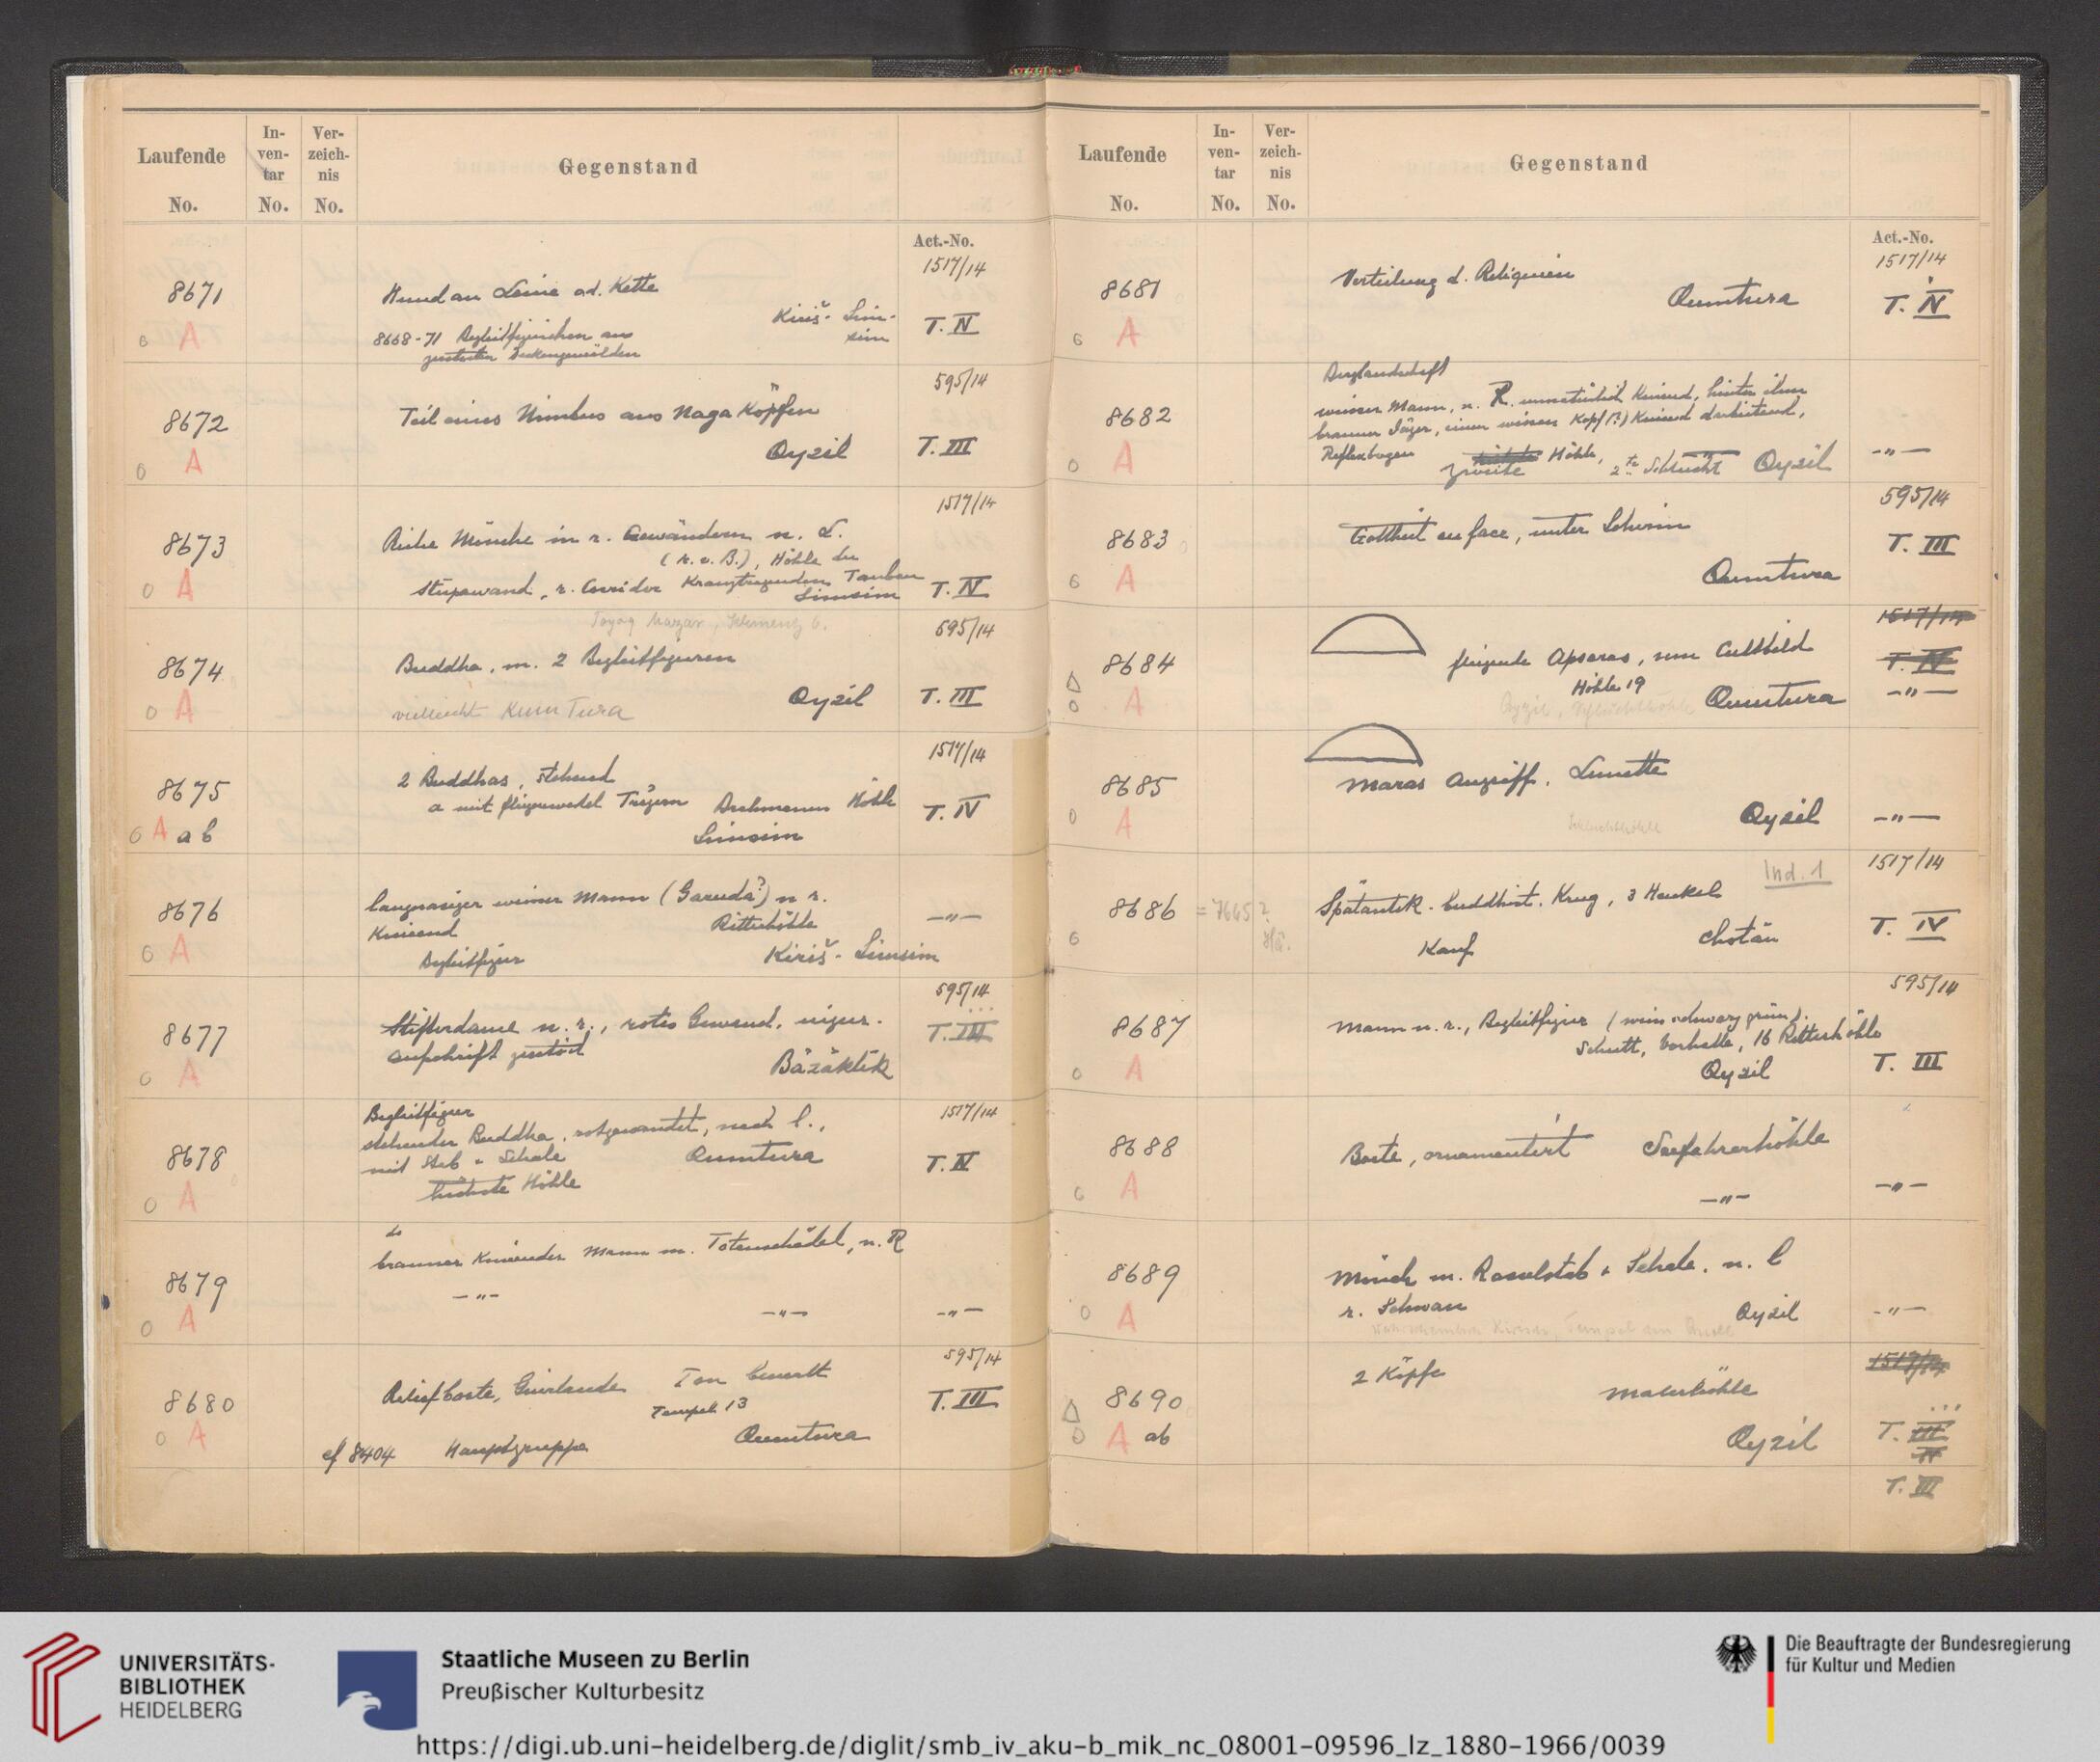 Laufende
No.
In-
ven-
tar
No.
Ver-
zeich-
nis
No.
Gegenstand
Act.-No.
1517/14
8671
A
Hund an Leine od. Kette
Kiriš- Sim-
sim
8668-71 Begleitfigürchen aus
zerstörten Deckengemälden
T. IV
595/14
8672
A
Teil eines Nimbus aus Naga Köpfen
Qyzil
T. III
1517/14
8673
A
Reihe Mönche in r. Gewändern n. L.
(k. v. B.), Höhle der
Stupawand, r. Corridor Kranztragenden Tauben
Simsim
T. IV
Toyoq Mazar,
595/14
8674
A
Buddha, m. 2 Begleitfiguren
vielleicht Kum Tura
Qyzil
T. III
1517/14
8675
A ab
2 Buddhas, stehend
a mit fliegenwedel Trägern Brahmanen Höhle
Simsim
T. IV
8676
A
langnasiger weisser Mann (Garuda?) n r.
Knieend
Ritterhöhle
Begleitfigur
Kiriš - Simsim
-"-
595/14
8677
A
Stifterdame n. r., rotes Gewand, uigur.
Aufschrift zerstört
Bäzäklik
T. III
1517/14
8678
A
Begleitfigur
stehender Buddha, rotgewandet, nach l.,
mit Stab u Schale
Qumtura
höchste Höhle
T. IV
8679
A
do
brauner Knieender Mann m. Totenschädel, n. R
-"-
-"-
-"-
595/14
8680
A
Reliefborte, Guirlande Ton bemalt
Tempel 13
cf 8404 Hauptgruppe
Qumtura
T. III
Laufende
No.
In-
ven-
tar
No.
Ver-
zeich-
nis
No.
Gegenstand
Act.-No.
1517/14
8681
A
Verteilung d. Reliquien
Qumtura
T. IV
8682
A
Berglandschaft
weisser Mann, n. R. unnatürlich Knieend, hinter ihm
brauner Jäger, einen weissen Kopf (?) Knieend darbietend,
Reflexbogen
zweite Höhle, 2te Schlucht Qyzil
-"-
595/14
8683
A
Gottheit en face, unter Schirm
Qumtura
T. III
1517/14
8684
A
fliegende Apsaras, vom Cultbild
Höhle 19
Qyzil, Schluchthöhle
Qumtura
T. IV
-"-
8685
A
Maras Angriff. Lunette
Schluchthöhle
Qyzil
-"-
1517/14
8686
= 7665?
Ind. 1
Spätantik. buddhist. Krug, 3 Henkel
Kauf
Chotän
T. IV
595/14
8687
A
Mann n. r., Begleitfigur (weiss schwarz grün).
Schutt, Vorhalle, 16 Ritterhöhle
Qyzil
T. III
8688
A
Borte, ornamentirt Seefahrerhöhle
-"-
-"-
8689
A
Mönch m. Rasselstab u Schale. n. l
r. Schwan
Qyzil
-"-
1517/14
8690
A ab
2 Köpfe
Malerhöhle
Qyzil
T. III
IV
T. III
UNIVERSITÄTS-
BIBLIOTHEK
HEIDELBERG
Staatliche Museen zu Berlin
Preußischer Kulturbesitz
Die Beauftragte der Bundesregierung
für Kultur und Medien
https://digi.ub.uni-heidelberg.de/diglit/smb_iv_aku-b_mik_nc_08001-09596_lz_1880-1966/0039